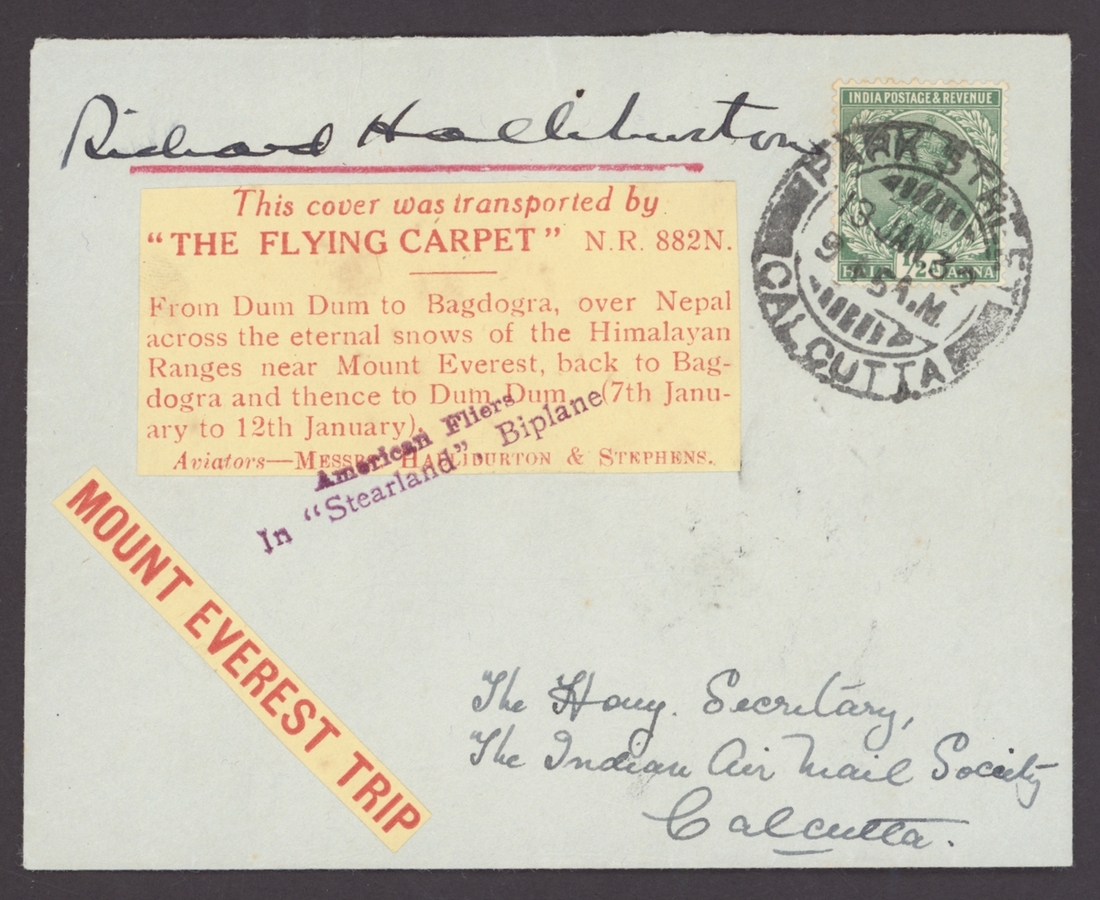 Richard Halliburton
INDIA POSTAGE & REVENUE
HALF 1/2 ANNA
PARK STREET
13 JAN. 32
9
A.M.
CALCUTTA
This cover was transported by
"THE FLYING CARPET" N.R. 882N.
From Dum Dum to Bagdogra, over Nepal
across the eternal snows of the Himalayan
Ranges near Mount Everest, back to Bag-
dogra and thence to Dum Dum (7th Janu-
ary to 12th January).
Aviators—MESSRS. HALLIBURTON & STEPHENS.
American Fliers
In "Stearland", Biplane
MOUNT EVEREST TRIP
The Hony. Secretary,
The Indian Air Mail Society
Calcutta.